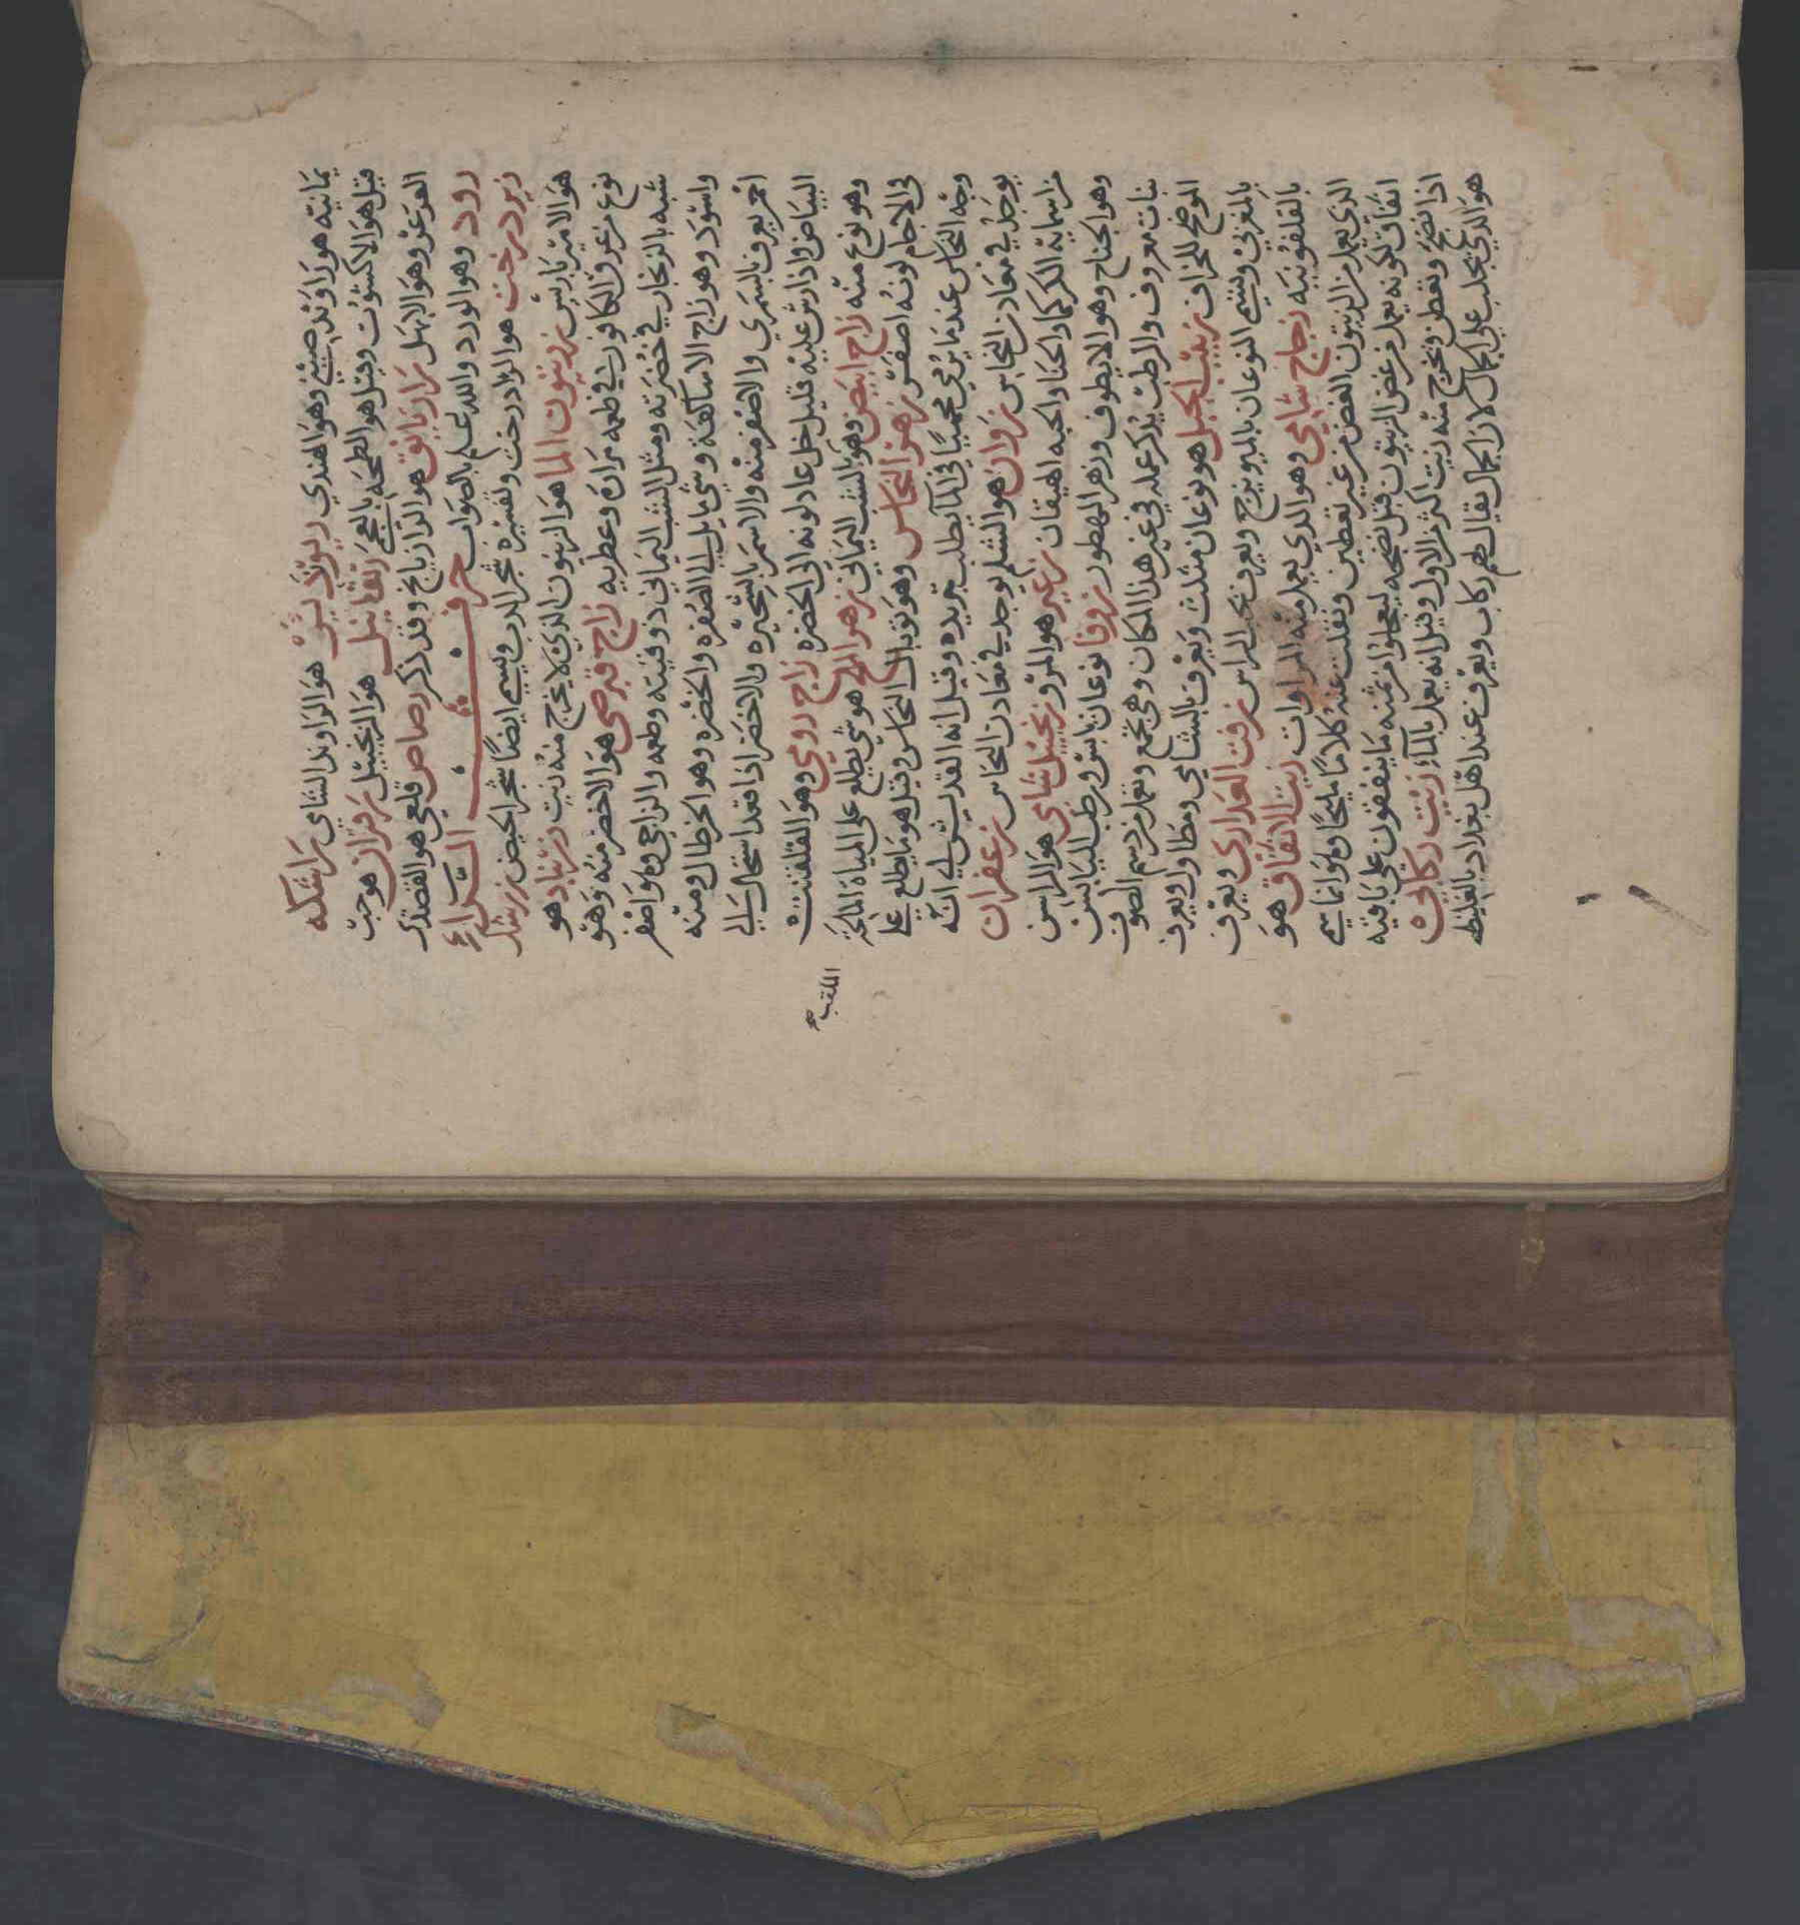 يمانية هو راوند صيني وهو الهندي ريوتلاليثو هو الراوند الشامي راشكه
قيل هو الاكشوث وقيل هو الطحمة بالعجمي رنقانيل هو الزنجبيل رقران هو حب
العرعر وهو الابهل راريانق هو الرازيانج وقد ذكر رصاص قلعي هو القصدير
رود وهو الورد والله اعلم بالصواب حرف الزاء
زيرد رخت هو الزاد رخت وتفسيره شجر الدب ويسمى ايضا شجر الحيض زرشك
هو الامير باريس زيتون الما هو الزيتون الذي لا يخرج منه زيت زرنباد هو
نوع من عروق الكافور في طعمه مرارة وعطرية زاج قبرصي هو الاخضر منه وهو
شبه بالزنجار في خضرته ومثل الشب اليماني في قبته وطعمه والزاج وهو اصفر
واسود وهو زاج الاساكفة وشي مايل الى الصفره والخضره وهو الخرطال ومنه
احمر يعرف بالسوري والاصفر منه والاسمر بالشحيره والاخضر اذا قعد استحال الى
البياض واذا رش عليه قليل خل عاد لونه الى الخضره زاج رومي وهو القلقنت
وهو نوع منه زاج ابيض وهو الشب اليماني زهر الملح هو شي يطلع على المياه المالحة
في الاجام لونه اصفر زهر النحاس وهو توبال النحاس وقيل هو ما يطلع على
وجه النحاس عند ما يرمى محميا في الماء يطلب تبريده وقيل انه القديش لي انه
يوجد في معادن النحاس زوان هو الشلم يوجد في معادن النحاس زعفران
من اسمايه الكركم والجنا والجيه الهيقان زغبر هو المرو زنجبيل شامي هو الراسن
وهو الجناح وهو الانطوف وزهر المهطور زوفا نوعان يابس ورطب اليابس
نبات معروف والرطب يذكر عمله في غير هذا المكان وهي تجمع وتعمل من دسم الصوف
الموضح للخراف زبيب الجبل هو نوعان مثلث ويعرف بالشامي ومطاول ويعرف
بالمغربي وتسمى النوعان بالميويزج ويعرف بحب الراس زفت العداري ويعرف
بالقلفونيه زجاج شامي وهو الذي يعمل منه المراوات زيت الانفاق هو
الذي يعمل من الزيتون الغض من غير تعطين ونقلت عنه كلاما مليحا وهو انما سمي
انفاق لكونه يعمل من غض الزيتون قبل نضجه ليعجلوا من ثمنه ما ينفقون على باقيه
اذا نضج ونعطن وتخرج منه زيت اكثر من الاول وقيل انه يعمل بالماء زيت ركابي
هو الذي يجلب على الجمال لان الجمال يقال لهم ركاب ويعرف عند اهل بغداد بالغليظ
الملقب